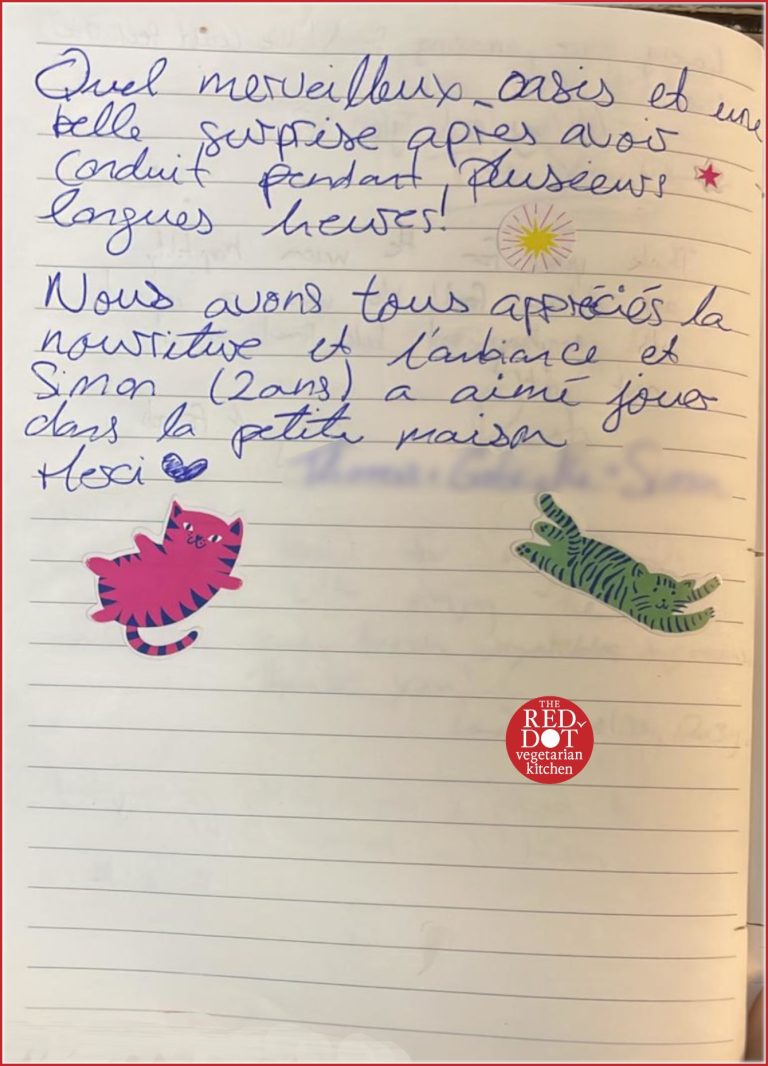 Quel merveilleux oasis et une
belle surprise après avoir
conduit pendant plusieurs
longues heures!
Nous avons tous appréciés la
nourriture et l'ambiance et
Simon (2 ans) a aimé jouer
dans la petite maison
Merci
THE
RED
DOT
vegetarian
kitchen